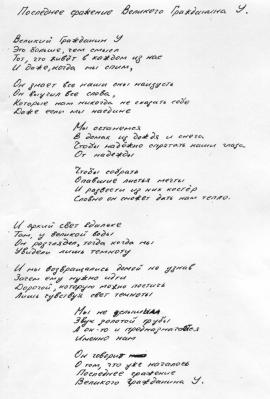 Последнее сражение Великого Гражданина У.
Великий Гражданин У
Это больше, чем смысл
Тот, что живёт в каждом из нас
И даже, когда мы спим,
Он знает все наши сны наизусть
Он выучил все слова,
Которые нам никогда не сказать себе
Даже если мы наедине
Мы останемся
В домах из дождя и снега
Чтобы надёжно спрятать наши глаза
От надежды
Чтобы собрать
Опавшие листья мечты
И развести из них костёр
Словно он сможет дать нам тепло.
И яркий свет вдалеке
Там, у великой воды
Он разглядел, тогда когда мы
Увидели лишь темноту
И мы возвращались домой не узнав
Зачем ему нужно идти
Дорогой, которую можно постичь
Лишь чувствуя свет темноты
Мы не услышим
Звук золотой трубы
А он-то и предназначался
Именно нам
Он говорит
О том, что уже началось
Последнее сражение
Великого Гражданина У.